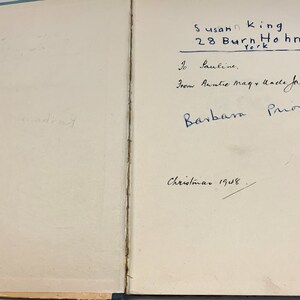 Susan King
28 Burn Holm
York
To Pauline.
From Auntie Mag & Uncle
Barbara
Christmas 1948.